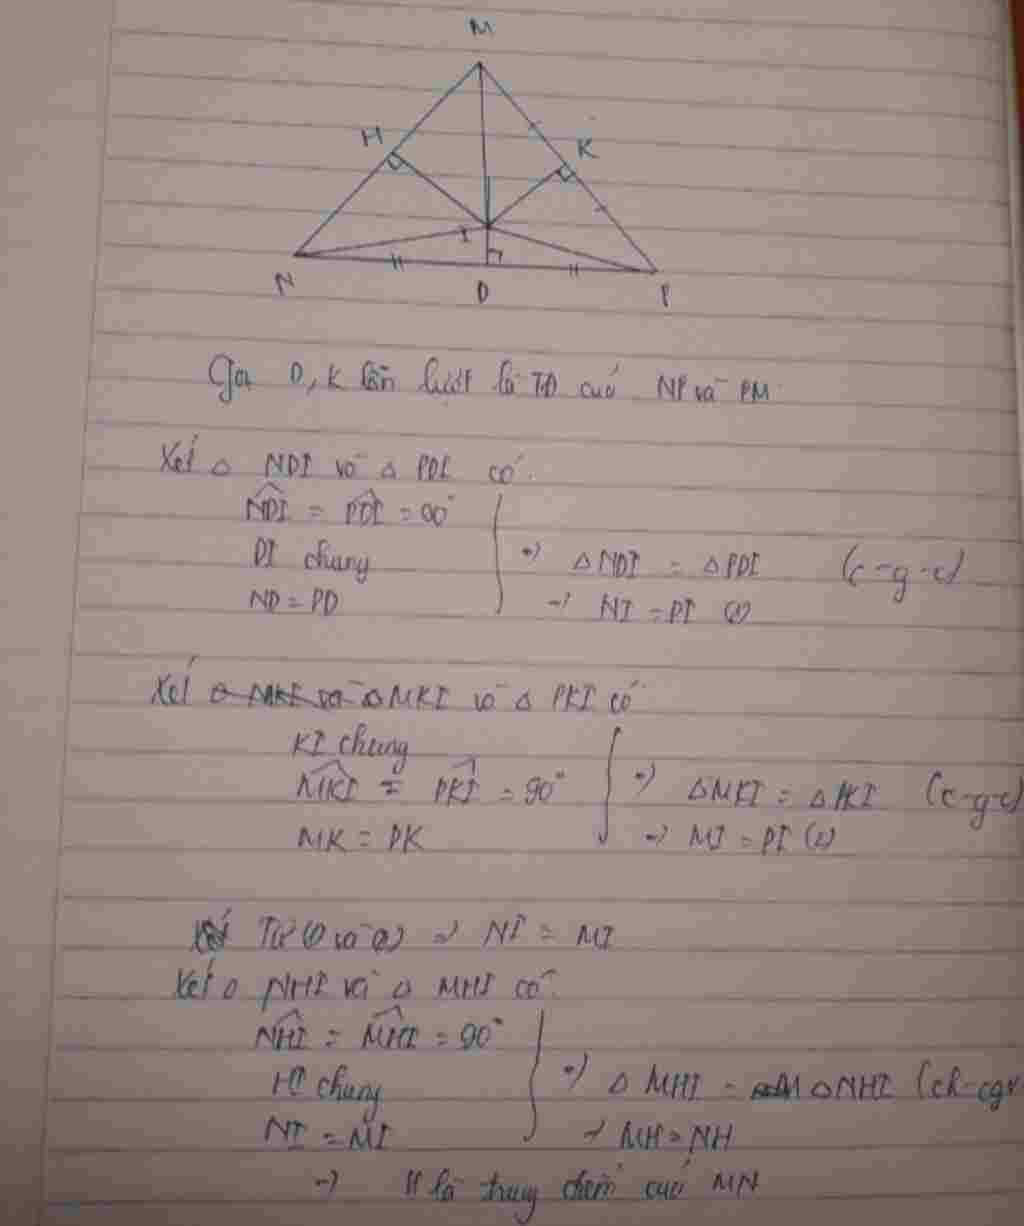 M
H
K
I
N
D
P
Gọi D, K lần lượt là TĐ của NP và PM
Xét △ NDI và △ PDI có:
NDI = PDI = 90°
DI chung
=> △NDI = △PDI (c-g-c)
ND = PD
=> NI = PI (1)
Xét △MKI và △ PKI có
KI chung
MKI = PKI = 90°
=> △MKI = △PKI (c-g-c)
MK = PK
=> MI = PI (2)
Từ (1) và (2) => NI = MI
Xét △ NHI và △ MHI có
NHI = MHI = 90°
HI chung
=> △ MHI = △NHI (ch-cgv
NI = MI
=> MH = NH
=> H là trung điểm của MN